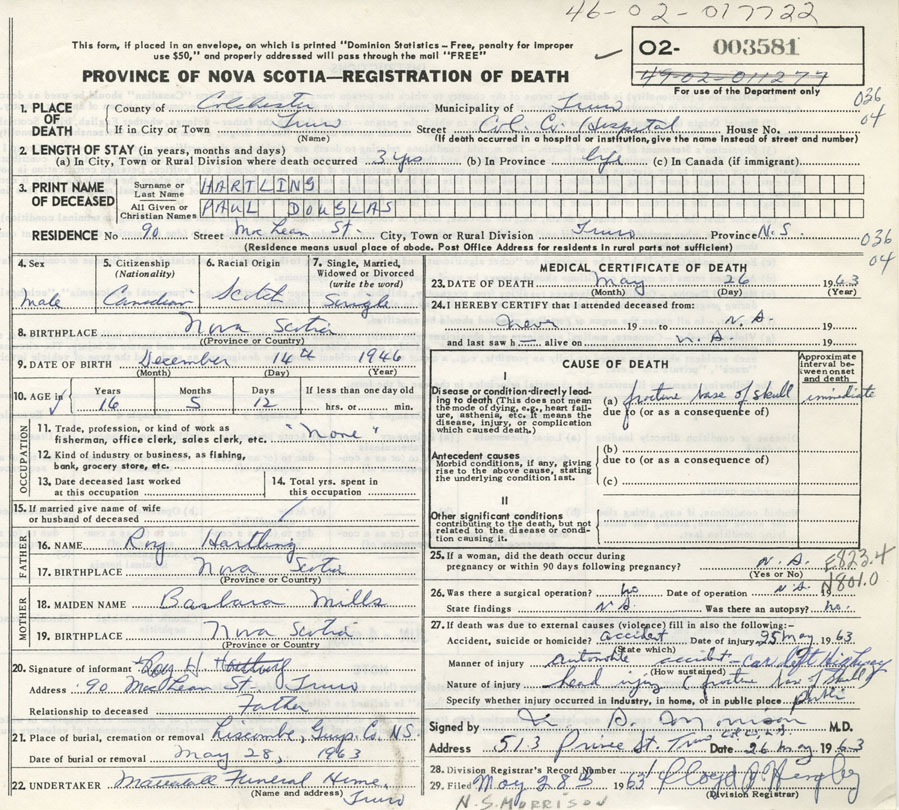 46-02-017722
This form, if placed in an envelope, on which is printed "Dominion Statistics – Free, penalty for improper
use $50," and properly addressed will pass through the mail "FREE"
02- 003581
49-02-011277
For use of the Department only
PROVINCE OF NOVA SCOTIA—REGISTRATION OF DEATH
036
04
1. PLACE OF DEATH
County of Colchester Municipality of Truro
If in City or Town Truro Street Col. Co. Hospital House No.
(Name) (If death occurred in a hospital or institution, give the name instead of street and number)
2. LENGTH OF STAY (in years, months and days)
(a) In City, Town or Rural Division where death occurred 3 yrs (b) In Province life (c) In Canada (if immigrant)
3. PRINT NAME OF DECEASED
Surname or Last Name HARTLING
All Given or Christian Names PAUL DOUGLAS
RESIDENCE No 90 Street MacLean St. City, Town or Rural Division Truro Province N.S.
(Residence means usual place of abode. Post Office Address for residents in rural parts not sufficient)
036
04
4. Sex Male
5. Citizenship (Nationality) Canadian
6. Racial Origin Scotch
7. Single, Married, Widowed or Divorced (write the word) Single
8. BIRTHPLACE Nova Scotia
(Province or Country)
9. DATE OF BIRTH December 14th 1946
(Month) (Day) (Year)
10. AGE in Years 16 Months 5 Days 12 If less than one day old hrs. or min.
OCCUPATION
11. Trade, profession, or kind of work as fisherman, office clerk, sales clerk, etc. "None"
12. Kind of industry or business, as fishing, bank, grocery store, etc.
13. Date deceased last worked at this occupation
14. Total yrs. spent in this occupation
15. If married give name of wife or husband of deceased
FATHER
16. NAME Roy Hartling
17. BIRTHPLACE Nova Scotia
(Province or Country)
MOTHER
18. MAIDEN NAME Barbara Mills
19. BIRTHPLACE Nova Scotia
(Province or Country)
20. Signature of informant Roy W Hartling
Address 90 MacLean St. Truro
Relationship to deceased Father
21. Place of burial, cremation or removal Liscombe, Guys. Co. N.S.
Date of burial or removal May 28, 1963
22. UNDERTAKER Funeral Home, Truro
(Name and address)
MEDICAL CERTIFICATE OF DEATH
23. DATE OF DEATH May 26 1963
(Month) (Day) (Year)
24. I HEREBY CERTIFY that I attended deceased from:
never 19 to N.A. 19
and last saw h— alive on N.A. 19
CAUSE OF DEATH
Approximate interval between onset and death
I
Disease or condition directly leading to death (This does not mean the mode of dying, e.g., heart failure, asthenia, etc. It means the disease, injury, or complication which caused death.)
(a) fracture base of skull immediate
due to (or as a consequence of)
Antecedent causes
Morbid conditions, if any, giving rise to the above cause, stating the underlying condition last.
(b)
due to (or as a consequence of)
(c)
II
Other significant conditions contributing to the death, but not related to the disease or condition causing it.
25. If a woman, did the death occur during pregnancy or within 90 days following pregnancy? N.A.
(Yes or No)
E823.4
N801.0
26. Was there a surgical operation? no Date of operation N.A. 19
State findings N.A. Was there an autopsy? no.
27. If death was due to external causes (violence) fill in also the following:-
Accident, suicide or homicide? accident Date of injury 25 May 1963
(State which)
Manner of injury automobile accident - Car left Highway
(How sustained)
Nature of injury head injury (fracture base of skull)
Specify whether injury occurred in Industry, in home, or in public place public
Signed by Morrison M.D.
Address 513 Prince St. Truro Date 26 May 1963
28. Division Registrar's Record Number
29. Filed May 28th 1963 Lloyd
(Division Registrar)
N.S. MORRISON